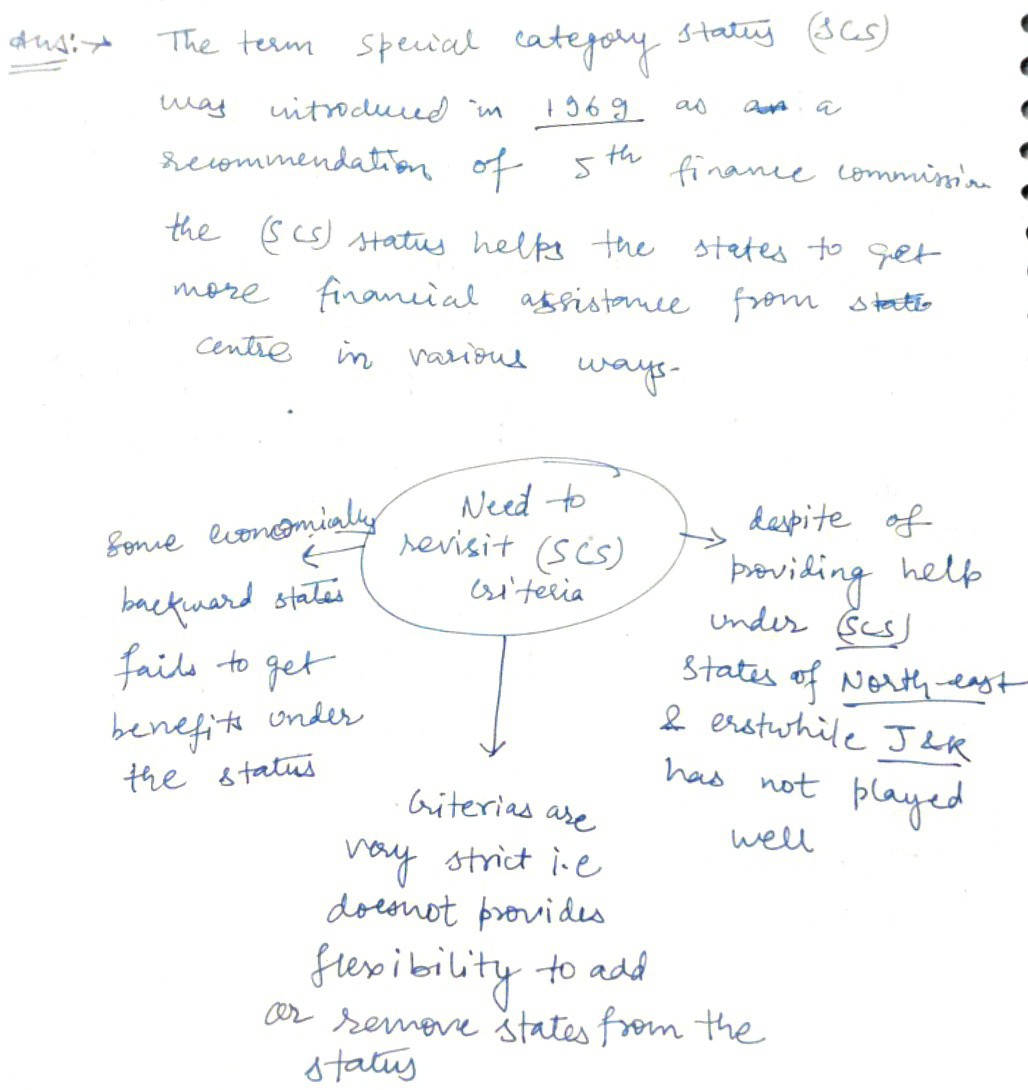 Ans:→ The term special category status (SCS)
was introduced in 1969 as an a
recommendation of 5th finance commission
the (SCS) status helps the states to get
more financial assistance from state
centre in various ways-
Need to
revisit (SCS)
criteria
Some economially
backward states
fails to get
benefits under
the status
Criterias are
very strict i.e
doesnot provides
flexibility to add
or remove states from the
status
despite of
providing help
under (SCS)
states of North-east
& erstwhile J&K
has not played
well